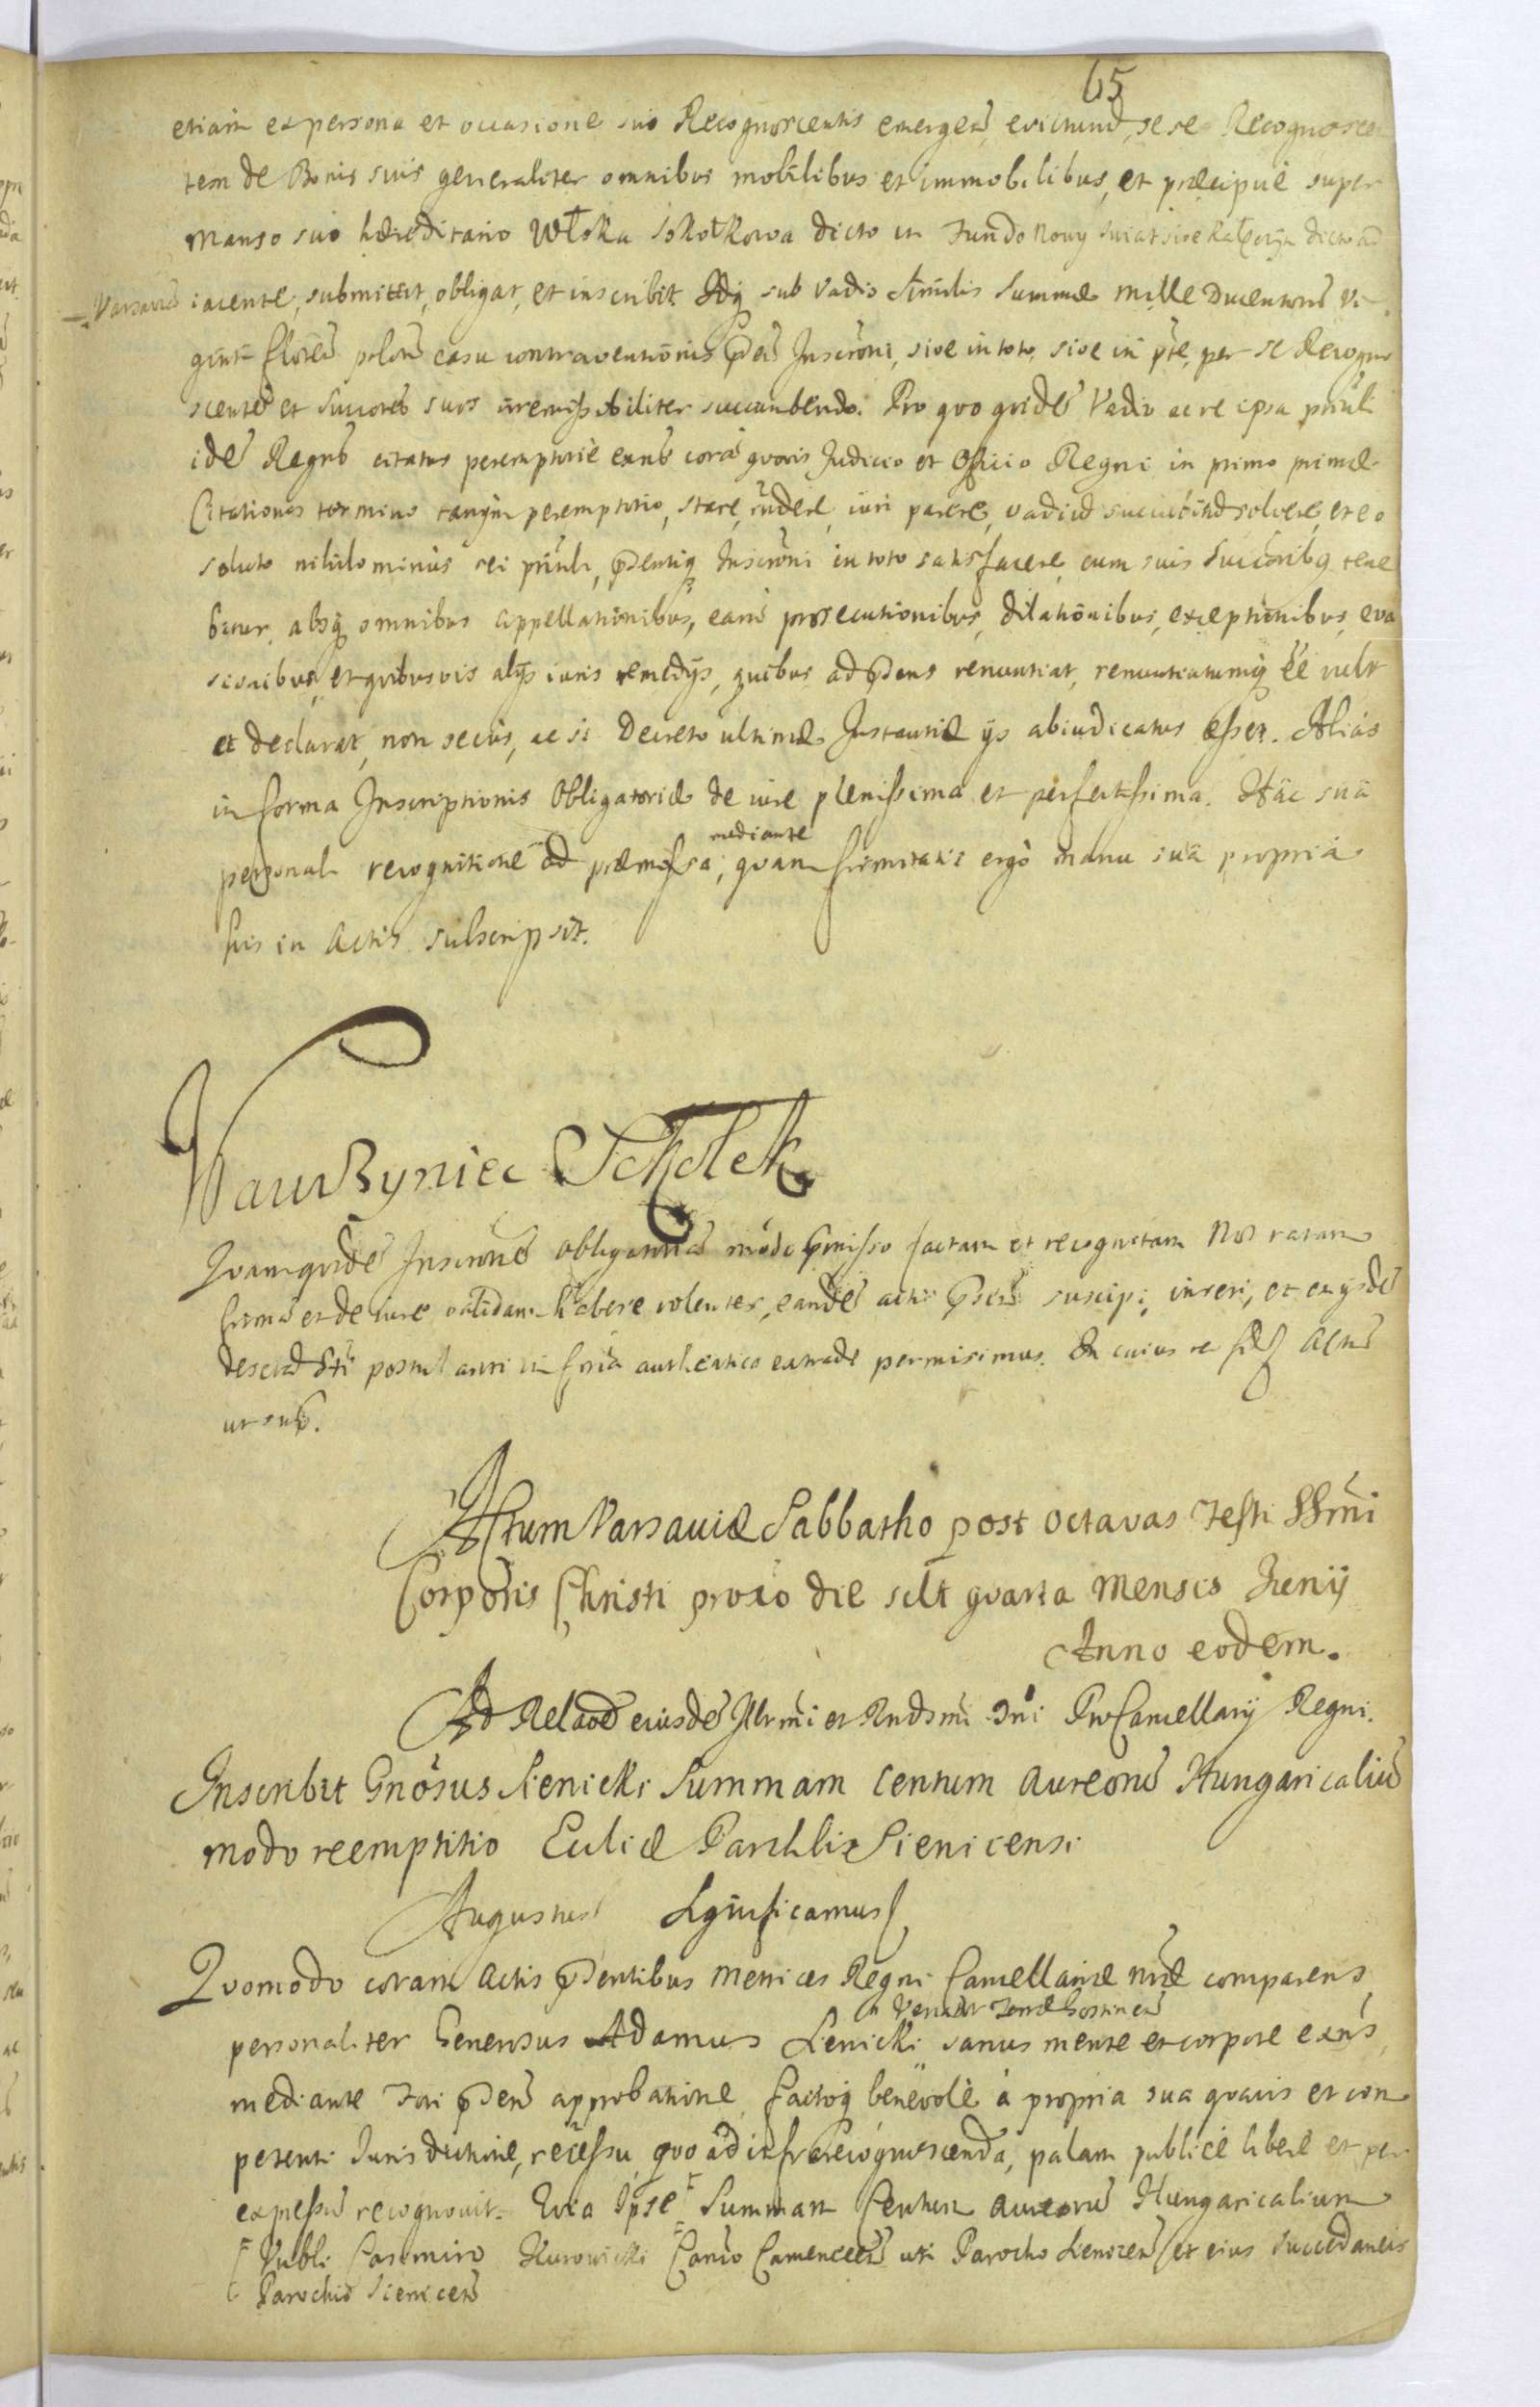 65
etiam ex persona et occasione sui Recognoscentis emergeñ, evictuum, sese Recognoscen
tem de Bonis suis generaliter omnibus mobilibus et immobilibus, et præcipuè super
Manso suo hæreditario Włoka Sokołkowa dicto in Fundo Nowy Swiat sive Kałęczyn dicto ad
Varsaviã iacente, submittit, obligat, et inscribit. Idq̃ sub vadio Similis Summæ Mille Ducentorũ vi
ginti floreñ poloñ casu contraventionis p̃nti Inscrõni, sive in toto, sive in p̃te, per se Recogno
scentẽ et Succores suos irremissibiliter succumbendo. Pro quo quidẽ Vadio ac re ipsa prinli
idẽ Regnẽs citatus peremptoriè eũs corã quovis Judicio et Officio Regni in primo primæ
Citationis termino tanqm̃ peremptorio, stare, r̃ndere, iuri parere, vadiũ succubitũ solvere, et eo
soluto nihilominùs rei prinli, p̃sentiq̃ Inscrõni in toto satisfacere, cum suis Succõribq tene
bitur, absq̃ omnibus appellationibus, earũ prosecutionibus, dilationibus, exceptionibus, eva
sionibus, et quibusvis alijs iuris remedijs, quibus ad p̃sens renuntiat, renuntiatumq̃ ẽe vult
et declarat, non secùs, ac si Decreto ultimæ Instantiæ ijs abiudicatus esset. Aliàs
in forma Inscriptionis Obligatoriæ de iure plenissima et perfectissima. Hâc suâ
mediante
personali recognitione ad præmissa, quam firmitatis ergò manu suâ propriâ
his in Actis subscripsit.
Wawrzyniec Sokołek
Quamquidẽ Inscrõnẽ obligatoriã modo p̃misso factam et recognitam Nos ratam
firmã et de iure validam habere volentes, eandẽ actis p̃ntibus suscipi, inseri, et ex ijsdẽ
descriptã pti postulanti in forã authentica extradi permisimus. In cuius rei fidẽ Actũ
ut sup̃.
Actum Varsaviæ Sabbatho post octavas Festi SSm̃i
Corporis Christi proxo die scilt quarta Mensis Junij
Anno eodem.
Ad Relaõẽ eiusdẽ Illrm̃i et Rndsmi Dñi ProCancellarij Regni.
Inscribit Gnõsus Sienicki Summam Centum Aureorũ Hungaricaliũ
modo reemptitio Eccliæ Parchli Sienicensi
Augustus Significamus
Quomodo coram Actis p̃sentibus Metrices Regni Cancellariæ nr̃æ comparens
Venator Terræ
personaliter Generosus Adamus Sienicki sanus mente et corpore exñs
mediante Fori p̃sen approbatione factoq̃ benevolè à propria sua quavis et com
petenti Jurisdictione, recessu, quo ad infra recognoscenda, palam publicè liberè et per
expressũ recognovit. Quia Ipse Summam Centum aureorũ Hungaricalium
Vnbli Casimiro Kurowicki Canõo Camenecen uti Parocho Sienicen et eius succedaneis
Parochis Sienicen